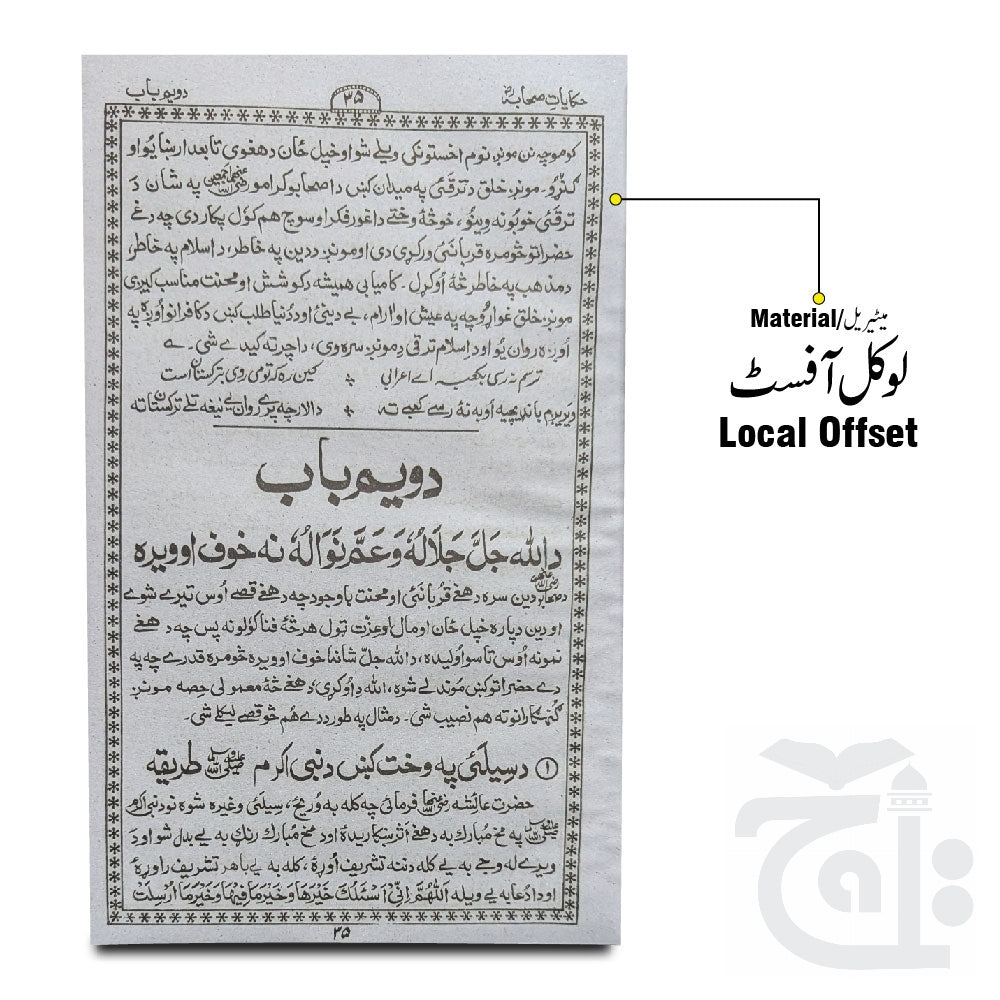 حکایاتِ صحابہؓ ۳۵ دویم باب
کوموچہ نن مونږ، نوم اخستونکی ویلے شو او خپل ځان دهغوی تابعدار ښایو او
ګنړو۔ مونږ، خلق د ترقئ په میدان کښ دا صحابو کرامو رضی اللہ عنہم اجمعین په شان د
ترقئ خوبونه وینو، خو څهٔ وختے دا غور فکر او سوچ هم کول پکار دی چه دغے
حضراتو څومره قربانئ ورکړی دی او مونږ، ددین په خاطر، د اسلام په خاطر،
د مذهب په خاطر څهٔ اوکړل۔ کامیابی همیشه د کوشش او محنت مناسب کیږی
مونږ، خلق غواړو چه په عیش او ارام، بے دینئ او د دُنیا طلب کښ د کافرانو اوږه په
اوږه روان یو او د اِسلام ترقی دِ مونږ، سره وی، دا چرته کیدے شی۔ ؎
ترسم نہ رسی بکعبہ اے اعرابی ؞ کین رہ کہ تو می روی بترکستان است
ویریږم باندیچیه اوبه نهٔ رسے کعبے ته ؞ دا لار چه پرے روان یے نیغه تلے ترکستان ته
دویم باب
د اللہ جَلَّ جَلَالُهٗ وَعَمَّ نَوَالُهٗ نه خوف او ویره
د صحابو رضی اللہ عنہم دین سره دهغے قربانئ او محنت باوجود چه دهغے قصے اُوس تیرے شوے
او دین دپاره خپل ځان او مال او عزت ټول هر څهٔ فنا کولو نه پس چه د هغے
نمونه اُوس تاسو اولیده، د اللہ جلّ شانهٗ خوف او ویره څومره قدرے چه په
دے حضراتو کښ موندلے شوه، اللہ دِ اوکړی، دهغے څهٔ معمولی حِصه مونږ،
ګنهګارانو ته هم نصیب شی۔ د مثال په طور ددے هُم څو قصے لیکلے شی۔
① د سِیلئ په وخت کښ د نبی اکرم ﷺ طریقه
حضرت عائشه رضی اللہ عنہا فرمائی چه کله به وُریځ، سیلئ وغیره شوه نو د نبی اکرم
ﷺ په مخ مُبارک به دهغے اَثر ښکاریدهٔ او د مخ مُبارک رنګ به یے بدل شو او د
ویرے له وجے به یے کله دننه تشریف اُوړهٔ، کله به یے باهر تشریف راوړهٔ
او دا دُعا به یے ویله اَللّٰهُمَّ اِنِّیْ اَسْئَلُكَ خَیْرَهَا وَخَیْرَ مَا فِیْهَا وَخَیْرَ مَا اُرْسِلَتْ
۳۵
Material/میٹیریل
لوکل آفسٹ
Local Offset